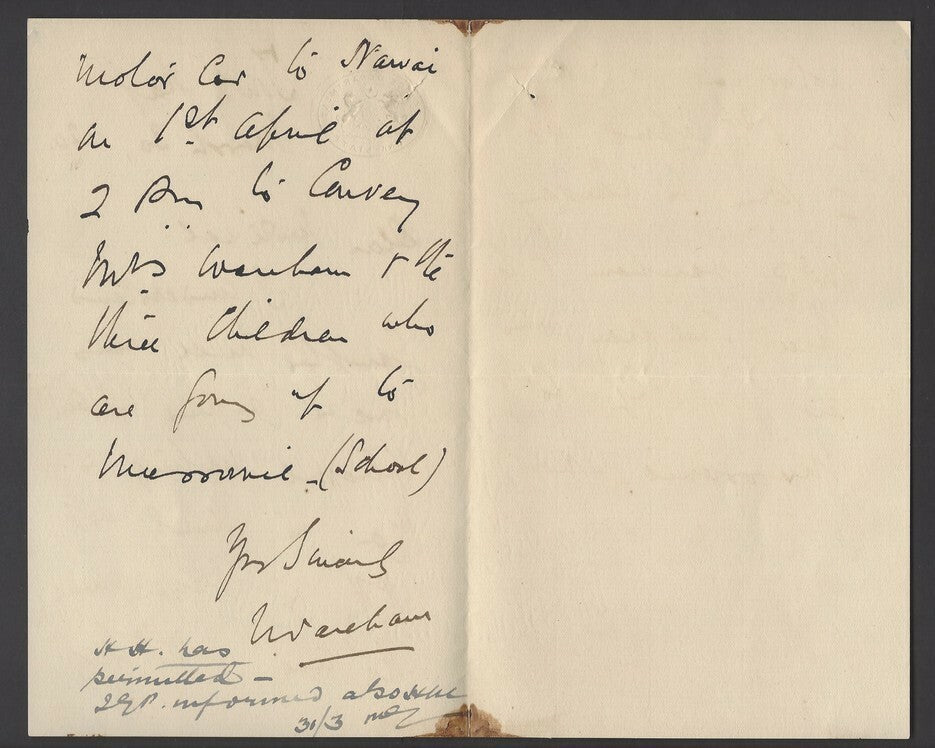 Motor Car to Nawai
on 1st April at
2 pm to Convey
Mrs Wareham & the
three Children who
are going up to
Mussoorie - (School)
Yrs Sincerely
Wareham
H.H. has
permitted -
informed also
31/3